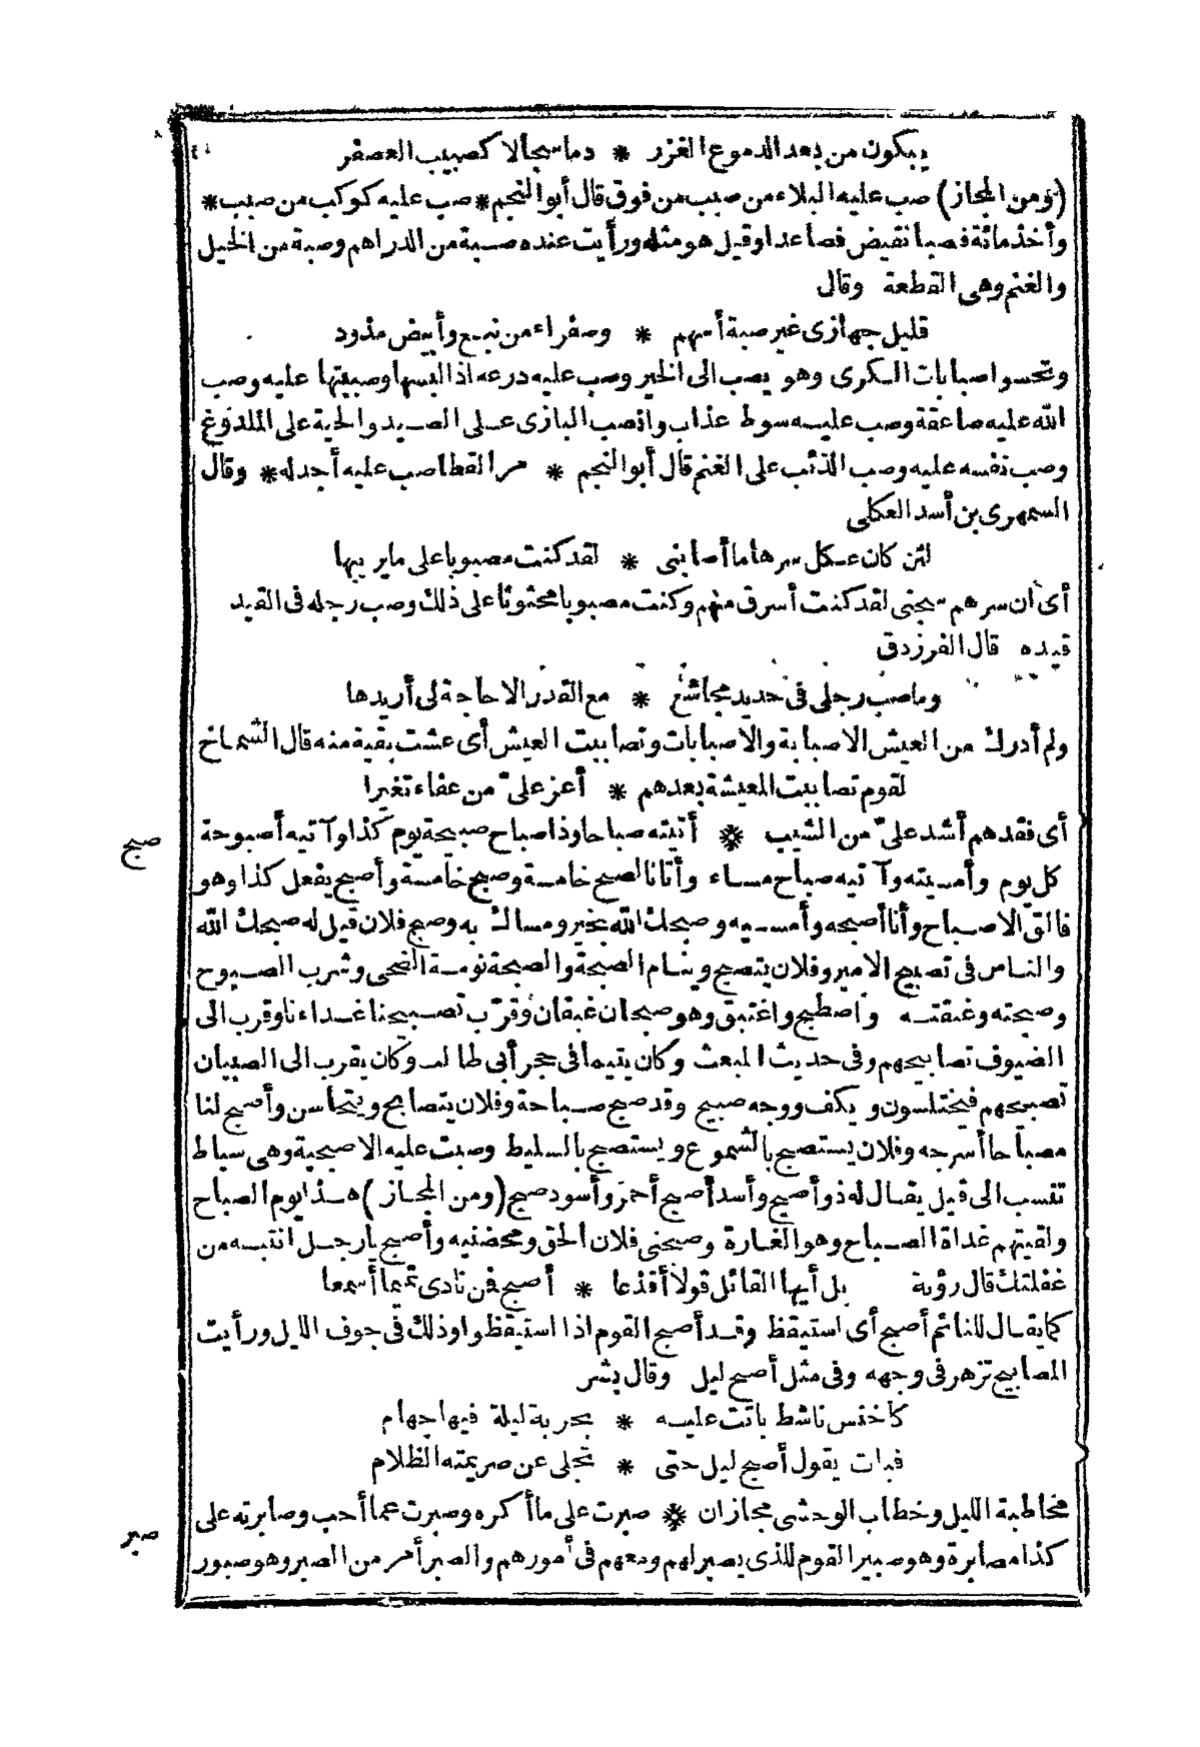 يبكون من بعد الدموع الغزر * دما سجالا كصبيب العصفر
(ومن المجاز) صب عليه البلاء من صبب من فوق قال أبو النجم * صب عليه كوكب من صبب *
وأخذ مائة فصبا نقيض فصاعدا وقيل هو مثله ورأيت عنده صبة من الدراهم وصبة من الخيل
والغنم وهى القطعة وقال
قليل جهازى غير صبة أسهم * وصفراء من نبع وأبيض مذود
وتحسوا صبابات الكرى وهو يصب الى الخير وصب عليه درعه اذا لبسها وصبيتها عليه وصب
الله عليه صاعقة وصب عليه سوط عذاب وانصب البازى على الصيد والحية على الملدوغ
وصب نفسه عليه وصب الذئب على الغنم قال أبو النجم * مر القطا صب عليه أجدله * وقال
السمهرى بن أسد العكلى
لئن كان عكل سرها ما أصابنى * لقد كنت مصبوبا على ما يريبها
أى ان سرهم سجنى لقد كنت أسرق منهم وكنت مصبوبا محثوثا على ذلك وصب رجله فى القيد
قيده قال الفرزدق
وما صب رجلى فى حديد مجاشع * مع القدر الا حاجة لى أريدها
ولم أدرك من العيش الا صبابة والا صبابات وتصاببت العيش أى عشت بقية منه قال الشماخ
لقوم تصاببت المعيشة بعدهم * أعز علىّ من عفاء تغيرا
أى فقدهم أشد علىّ من الشيب * أتيته صباحا وذا صباح صبيحة يوم كذا وآتيه أصبوحة
صبح
كل يوم وأمسيته وآتيه صباح مساء وأتانا لصبح خامسة وصبح خامسة وأصبح يفعل كذا وهو
فالق الاصباح وأنا أصبحه وأمسيه وصبحك الله بخير ومساك به وصبح فلان قيل له صبحك الله
والناس فى تصبيح الامير وفلان يتصبح وينام الصبحة والصبحة نومة الضحى وشرب الصبوح
وصبحته وغبقته واصطبح واغتبق وهو صبحان غبقان وقرّب تصبيحنا غداءنا وقرب الى
الضيوف تصابيحهم وفى حديث المبعث وكان يتيما فى حجر أبى طالب وكان يقرب الى الصبيان
تصبيحهم فيختلسون ويكف ووجه صبيح وقد صبح صباحة وفلان يتصابح ويتحاسن وأصبح لنا
مصباحا أسرجه وفلان يستصبح بالشموع ويستصبح بالسليط وصبت عليه الاصبحية وهى سياط
تنسب الى قيل يقال له ذو أصبح وأسد أصبح أحمر وأسود صبح (ومن المجاز) هذا يوم الصباح
ولقيتهم غداة الصباح وهو الغارة وصبحنى فلان الحق ومحضنيه وأصبح يا رجل انتبه من
غفلتك قال رؤبة بل أيها القائل قولا أقذعا * أصبح فمن نادى تميما أسمعا
كما يقال للنائم أصبح أى استيقظ وقد أصبح القوم اذا استيقظوا وذلك فى جوف الليل ورأيت
المصابيح تزهر فى وجهه وفى مثل أصبح ليل وقال بشر
كاخنس ناشط باتت عليه * بحربة ليلة فيها جهام
فبات يقول أصبح ليل حتى * تجلى عن صريمته الظلام
مخاطبة الليل وخطاب الوحشى مجازان * صبرت على ما أكره وصبرت عما أحب وصابرته على
صبر
كذا مصابرة وهو صبير القوم للذى يصبر لهم ومعهم فى أمورهم والصبر أمر من الصبر وهو صبور